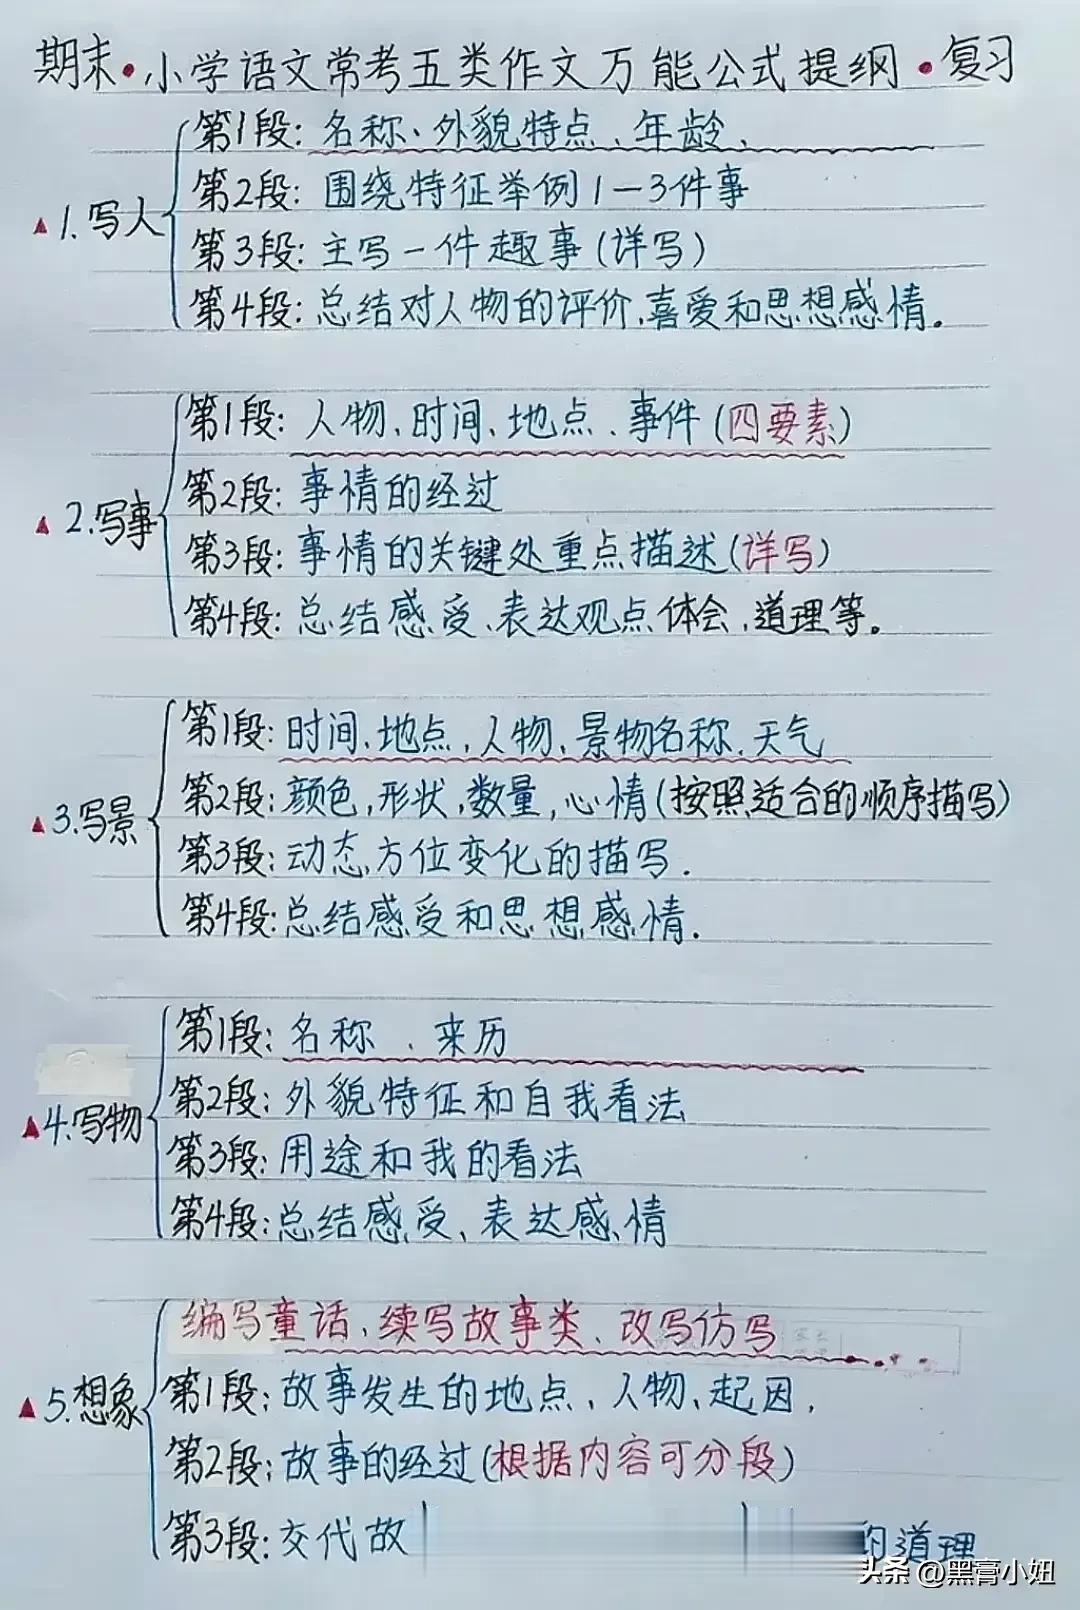 期末·小学语文常考五类作文万能公式提纲·复习
第1段:名称、外貌特点、年龄、
第2段:围绕特征举例1一3件事
▲1.写人
第3段:主写一件趣事(详写)
第4段:总结对人物的评价、喜爱和思想感情.
第1段:人物、时间、地点、事件(四要素)
第2段:事情的经过
▲2.写事
第3段:事情的关键处重点描述(详写)
第4段:总结感受、表达观点体会、道理等。
第1段:时间、地点、人物、景物名称、天气
第2段:颜色,形状,数量,心情(按照适合的顺序描写)
▲3.写景
第3段:动态方位变化的描写.
第4段:总结感受和思想感情.
第1段:名称、来历
第2段:外貌特征和自我看法
▲4.写物
第3段:用途和我的看法
第4段:总结感受、表达感情
编写童话、续写故事类、改写仿写
第1段:故事发生的地点、人物、起因,
▲5.想象
第2段:故事的经过(根据内容可分段)
第3段:交代故 的道理
头条 @黑膏小妞